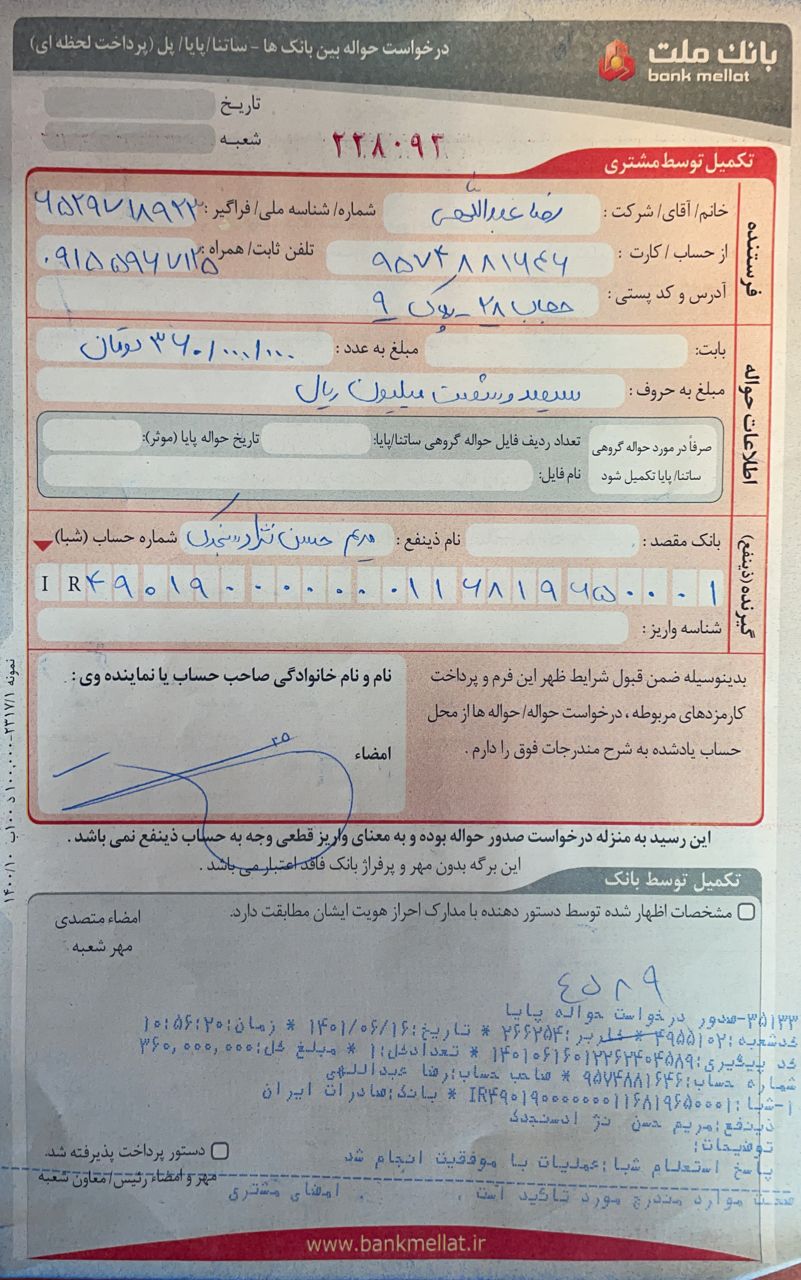 درخواست حواله بین بانک ها - ساتنا/پایا/ پل (پرداخت لحظه ای)
بانک ملت
bank mellat
تاریخ
شعبه
۲۲۸۰۹۲
تکمیل توسط مشتری
فرستنده
خانم/ آقای/ شرکت : رضا عبداللهی شماره/ شناسه ملی/ فراگیر : ۶۵۲۹۷۱۸۹۲۳
از حساب / کارت : ۹۵۷۴۸۸۱۶۴۶ تلفن ثابت/ همراه : ۰۹۱۵۵۹۶۷۱۲۵
آدرس و کد پستی : حجاب ۲۸ - پلاک ۹
اطلاعات حواله
بابت: مبلغ به عدد : ۳۶۰/۰۰۰/۰۰۰ تومان
مبلغ به حروف : سیصد و شصت میلیون ریال
صرفاً در مورد حواله گروهی ساتنا/ پایا تکمیل شود
تعداد ردیف فایل حواله گروهی ساتنا/پایا: تاریخ حواله پایا (موثر):
نام فایل:
گیرنده (ذینفع)
بانک مقصد : نام ذینفع : مریم حسن نژاد سنجدک شماره حساب (شبا)
IR۴۹۰۱۹۰۰۰۰۰۰۰۱۱۶۸۱۹۶۵۰۰۰۱
شناسه واریز :
بدینوسیله ضمن قبول شرایط ظهر این فرم و پرداخت
کارمزدهای مربوطه ، درخواست حواله/ حواله ها از محل
حساب یادشده به شرح مندرجات فوق را دارم .
نام و نام خانوادگی صاحب حساب یا نماینده وی :
امضاء
این رسید به منزله درخواست صدور حواله بوده و به معنای واریز قطعی وجه به حساب ذینفع نمی باشد .
این برگه بدون مهر و پرفراژ بانک فاقد اعتبار می باشد .
تکمیل توسط بانک
مشخصات اظهار شده توسط دستور دهنده با مدارک احراز هویت ایشان مطابقت دارد.
امضاء متصدی
مهر شعبه
۴۵۸۹
۳۵۱۳۳-صدور درخواست حواله پایا
کدشعبه:۴۹۵۵۱۰۲ * کاربر:۲۶۶۲۵۴ * تاریخ:۱۴۰۱/۰۶/۱۶ * زمان:۱۰:۵۶:۲۰
کد پیگیری:۱۴۰۱۰۶۱۶۰۱۲۲۶۲۴۰۴۵۸۹ * تعدادکل:۱ * مبلغ کل:۳۶۰,۰۰۰,۰۰۰
شماره حساب:۹۵۷۴۸۸۱۶۴۶ * صاحب حساب:رضا عبداللهی
۱-شبا:IR۴۹۰۱۹۰۰۰۰۰۰۰۱۱۶۸۱۹۶۵۰۰۰۱ * بانک:صادرات ایران
ذینفع:مریم حسن نژ ادسنجدک
توضیحات:
پاسخ استعلام شبا:عملیات با موفقیت انجام شد
صحت موارد مندرج مورد تأیید است . امضای مشتری
دستور پرداخت پذیرفته شد.
مهر و امضاء رئیس/ معاون شعبه
www.bankmellat.ir